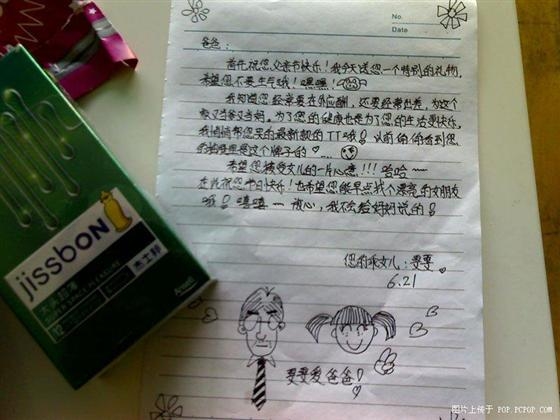 No.
Date
爸爸:
首先祝您父亲节快乐!我今天送您一个特别的礼物,
希望您不要生气哦!嘿嘿!
我知道您经常要在外应酬,还要经常出差,为这个
家又当爹又当妈,为了您的健康也是为了您的生活更快乐,
我悄悄帮您买的最新款的TT哦!以前偷偷看到您
的抽屉里是这个牌子的...
希望您接受女儿的一片心意!!!哈哈~~
在此祝您节日快乐!也希望您能早点找个漂亮的女朋友
哦!嘻嘻~放心,我不会给妈妈说的!
您的乖女儿:雯雯
6.21
雯雯爱爸爸!
jissbon
杰士邦
PLEASURE
12
Ansell
图片上传于 POP.PCPOP.COM